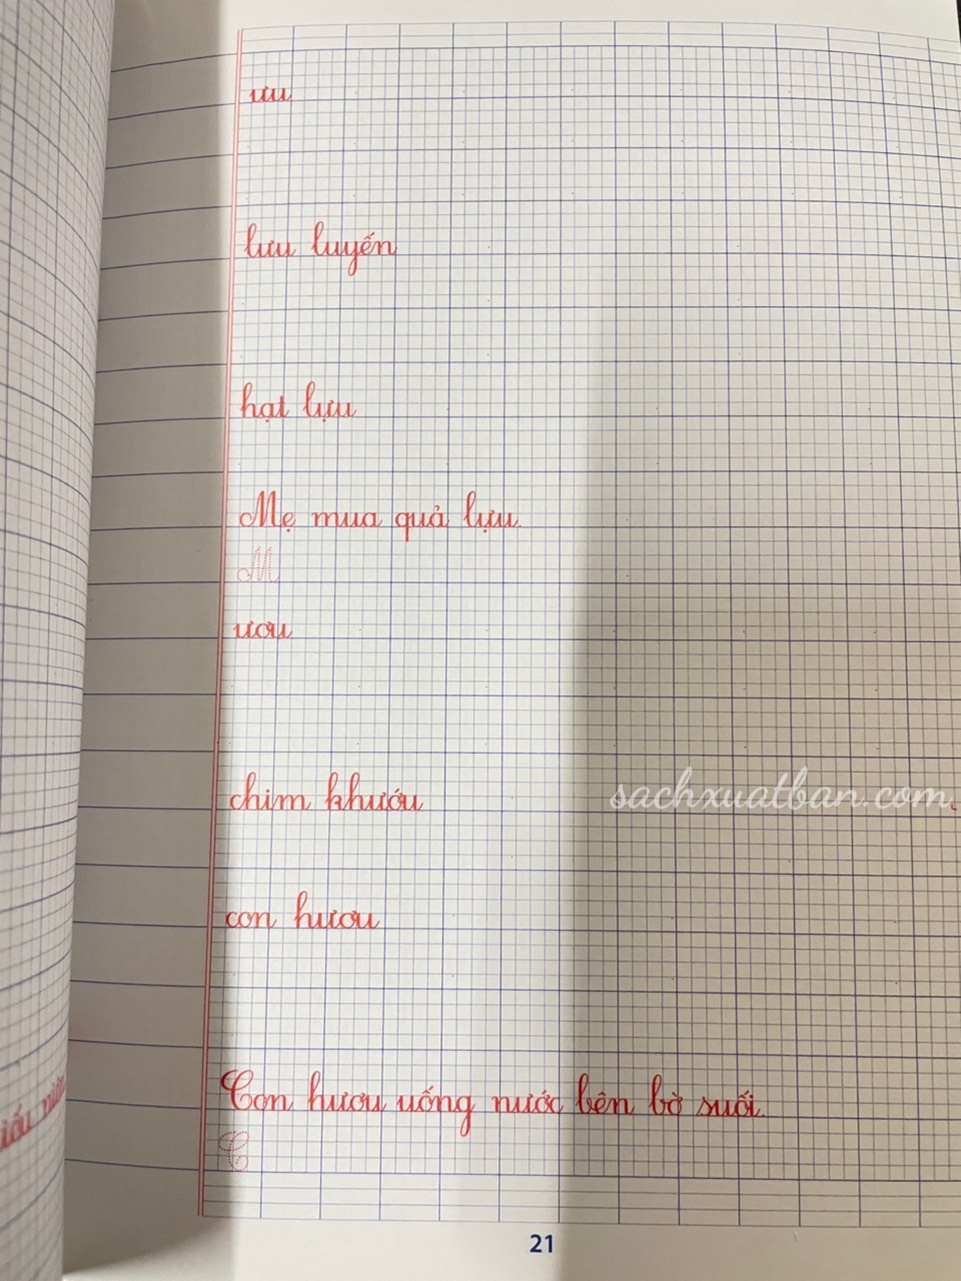 ưu
lưu luyến
hạt lựu
Mẹ mua quả lựu.
M
ươu
chim khướu
sachxuatban.com
con hươu
Con hươu uống nước bên bờ suối.
C
21